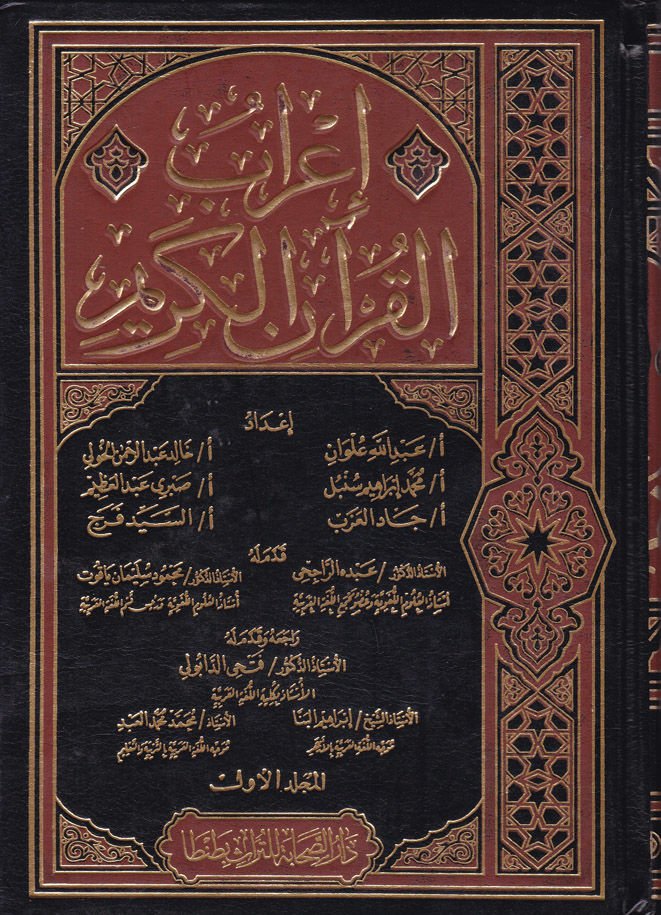 إعراب
القرآن الكريم
إعداد
أ/ عبد الله علوان أ/ خالد عبد الرحمن الخولي
أ/ محمد إبراهيم سنبل أ/ صبري عبد العظيم
أ/ جاد العزب أ/ السيد فرج
قدم له
الأستاذ الدكتور/ عبده الراجحي الأستاذ الدكتور/ محمود سليمان ياقوت
أستاذ العلوم اللغوية وعضو مجمع اللغة العربية أستاذ العلوم اللغوية ورئيس قسم اللغة العربية
راجعه وقدم له
الأستاذ الدكتور/ فتحي الدابولي
الأستاذ بكلية اللغة العربية
الأستاذ الشيخ/ إبراهيم البنا الأستاذ/ محمد محمد العبد
موجه اللغة العربية بالأزهر موجه اللغة العربية بالتربية والتعليم
المجلد الأول
دار الصحابة للتراث بطنطا